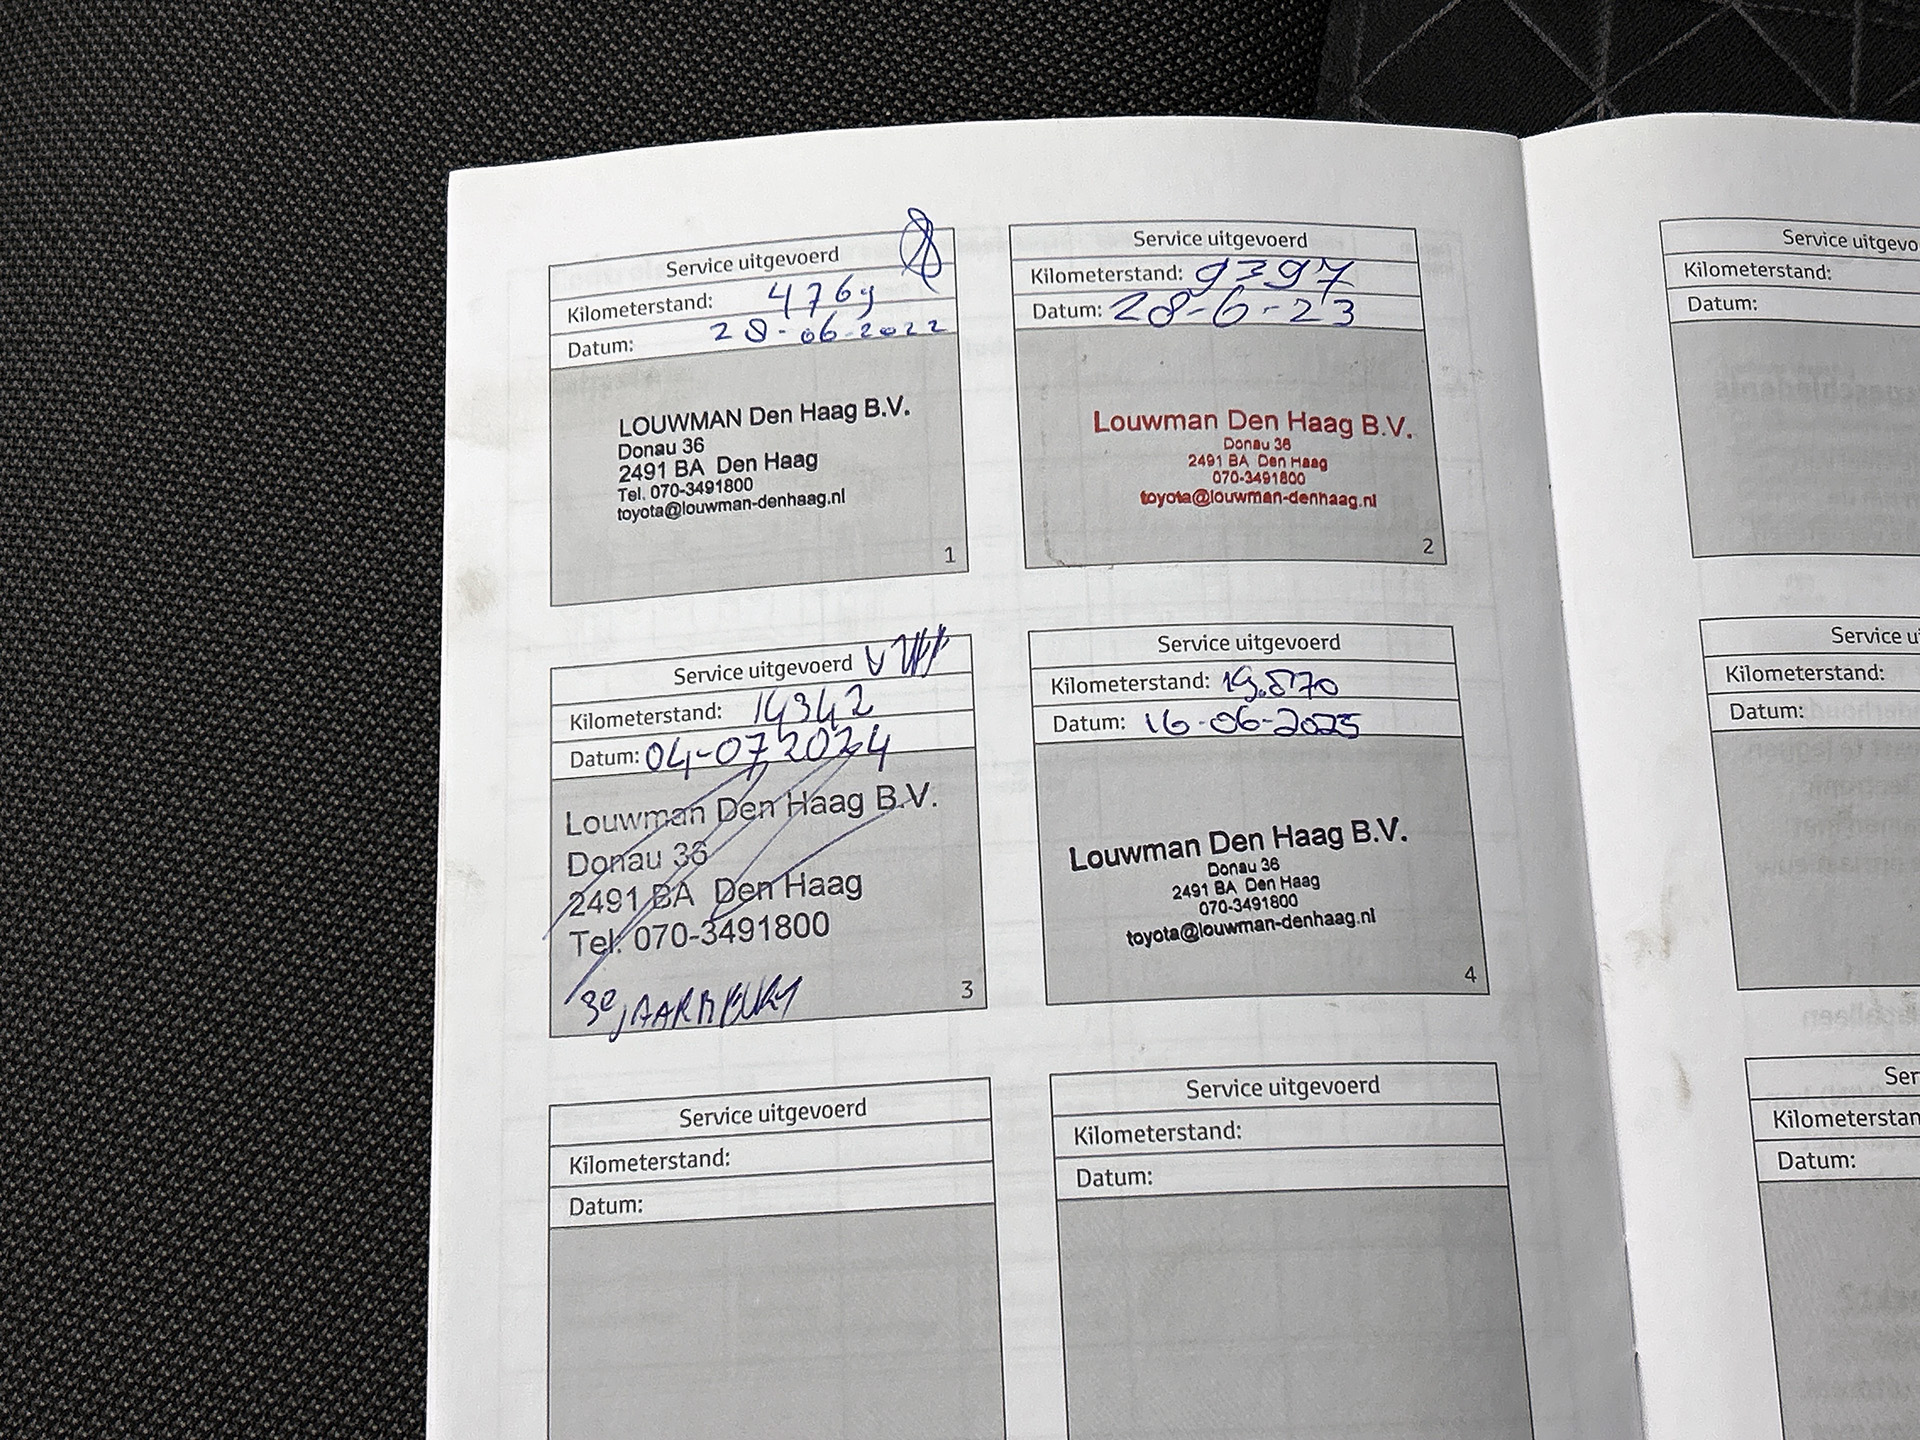 Service uitgevoerd
Kilometerstand: 4769
Datum: 28-06-2022
LOUWMAN Den Haag B.V.
Donau 36
2491 BA Den Haag
Tel. 070-3491800
toyota@louwman-denhaag.nl
1
Service uitgevoerd
Kilometerstand: 9397
Datum: 28-6-23
Louwman Den Haag B.V.
Donau 36
2491 BA Den Haag
070-3491800
toyota@louwman-denhaag.nl
2
Service uitgevo
Kilometerstand:
Datum:
Service uitgevoerd
Kilometerstand: 14342
Datum: 04-07 2024
Louwman Den Haag B.V.
Donau 36
2491 BA Den Haag
Tel. 070-3491800
3e JAARBEURT
3
Service uitgevoerd
Kilometerstand: 19.570
Datum: 16-06-2025
Louwman Den Haag B.V.
Donau 36
2491 BA Den Haag
070-3491800
toyota@louwman-denhaag.nl
4
Service u
Kilometerstand:
Datum:
Service uitgevoerd
Kilometerstand:
Datum:
Service uitgevoerd
Kilometerstand:
Datum:
Ser
Kilometerstan
Datum: